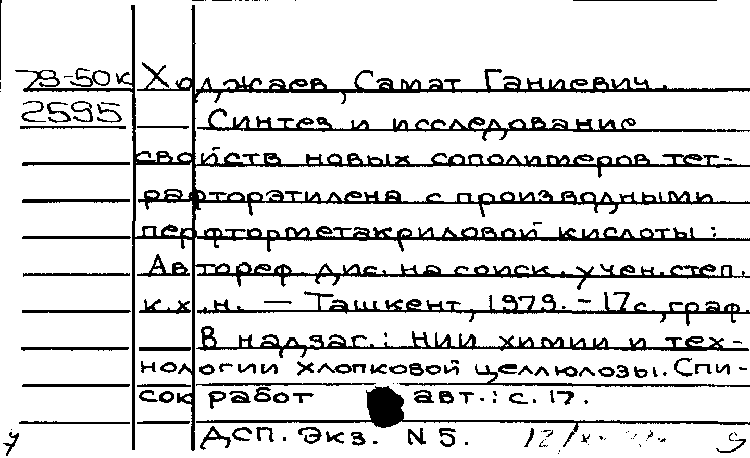 79-50к Ходжаев, Самат Ганиевич.
2595 Синтез и исследование
свойств новых сополимеров тет-
рафторэтилена с производными
перфторметакриловой кислоты:
Автореф. дис. на соиск. учен. степ.
к.х.н. — Ташкент, 1979. - 17с, граф.
В надзаг.: НИИ химии и тех-
нологии хлопковой целлюлозы. Спи-
сок работ авт.: с. 17.
ДСП. Экз. N 5.